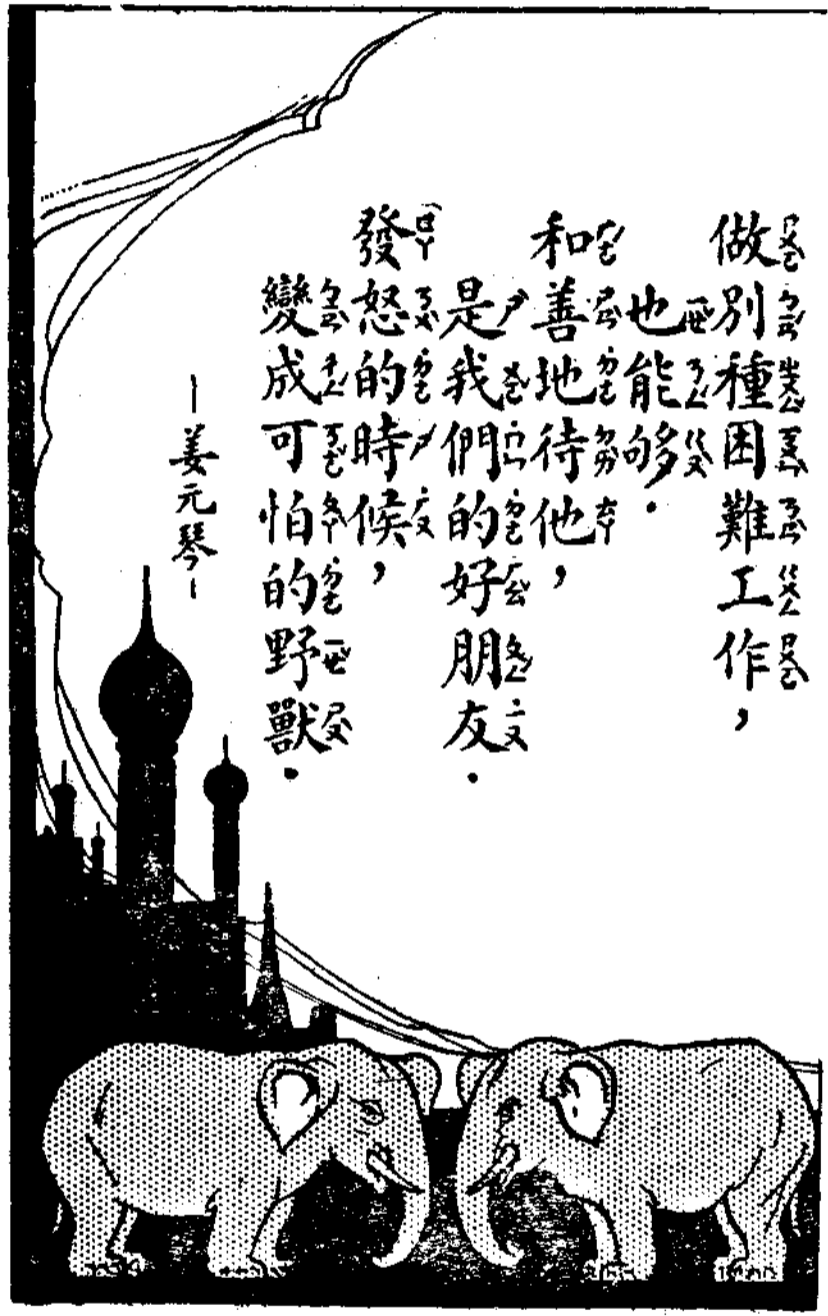 做別種困難工作，
也能够．
和善地待他，
是我們的好朋友．
發怒的時候，
變成可怕的野獸．
—姜元琴—